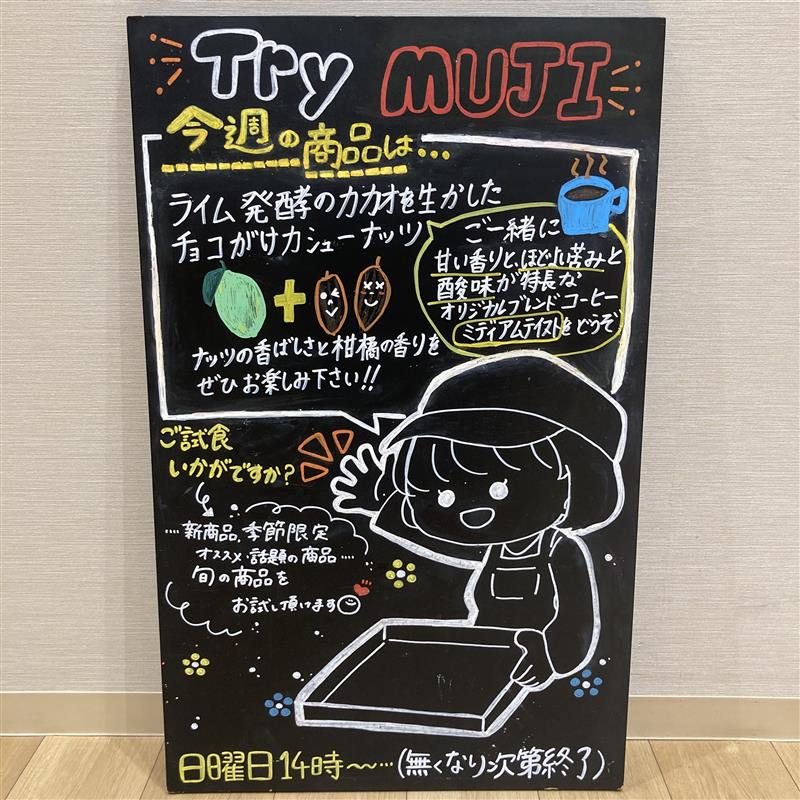 Try MUJI
今週の商品は…
ライム発酵のカカオを生かした
チョコがけカシューナッツ
ナッツの香ばしさと柑橘の香りを
ぜひお楽しみ下さい!!
ご一緒に
甘い香りと、ほどよい苦みと
酸味が特長な
オリジナルブレンドコーヒー
ミディアムテイストをどうぞ
ご試食
いかがですか?
…新商品、季節限定
オススメ・話題の商品…
旬の商品を
お試し頂けます
日曜日14時〜…(無くなり次第終了)